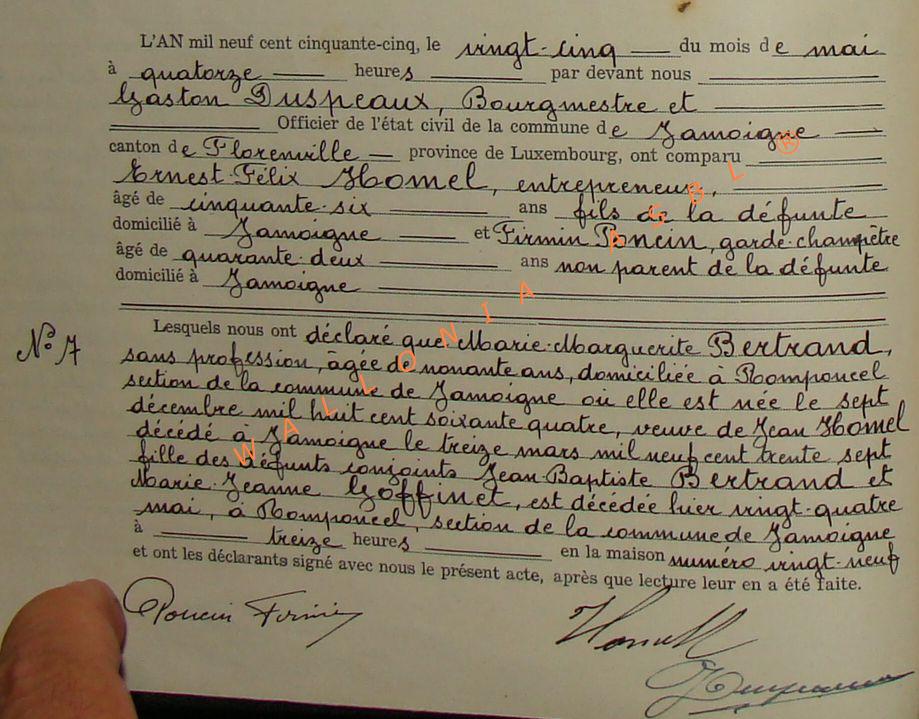 L'AN mil neuf cent cinquante-cinq, le vingt-cinq du mois de mai
à quatorze heures par devant nous
Gaston Duspeaux, Bourgmestre et
Officier de l'état civil de la commune de Jamoigne
canton de Florenville province de Luxembourg, ont comparu
Ernest-Félix Homel, entrepreneur,
âgé de cinquante-six ans fils de la défunte
domicilié à Jamoigne et Firmin Poncin, garde-champêtre
âgé de quarante-deux ans non parent de la défunte
domicilié à Jamoigne
Lesquels nous ont déclaré que Marie-Marguerite Bertrand,
N° 7
sans profession, âgée de nonante ans, domiciliée à Romponcel
section de la commune de Jamoigne où elle est née le sept
décembre mil huit cent soixante quatre, veuve de Jean Homel
décédé à Jamoigne le treize mars mil neuf cent trente sept
fille des défunts conjoints Jean-Baptiste Bertrand et
Marie-Jeanne Goffinet, est décédée hier vingt-quatre
mai, à Romponcel, section de la commune de Jamoigne
à treize heures en la maison numéro vingt-neuf
et ont les déclarants signé avec nous le présent acte, après que lecture leur en a été faite.
Poncin Firmin
Homel
WALLONIA ASBL ®